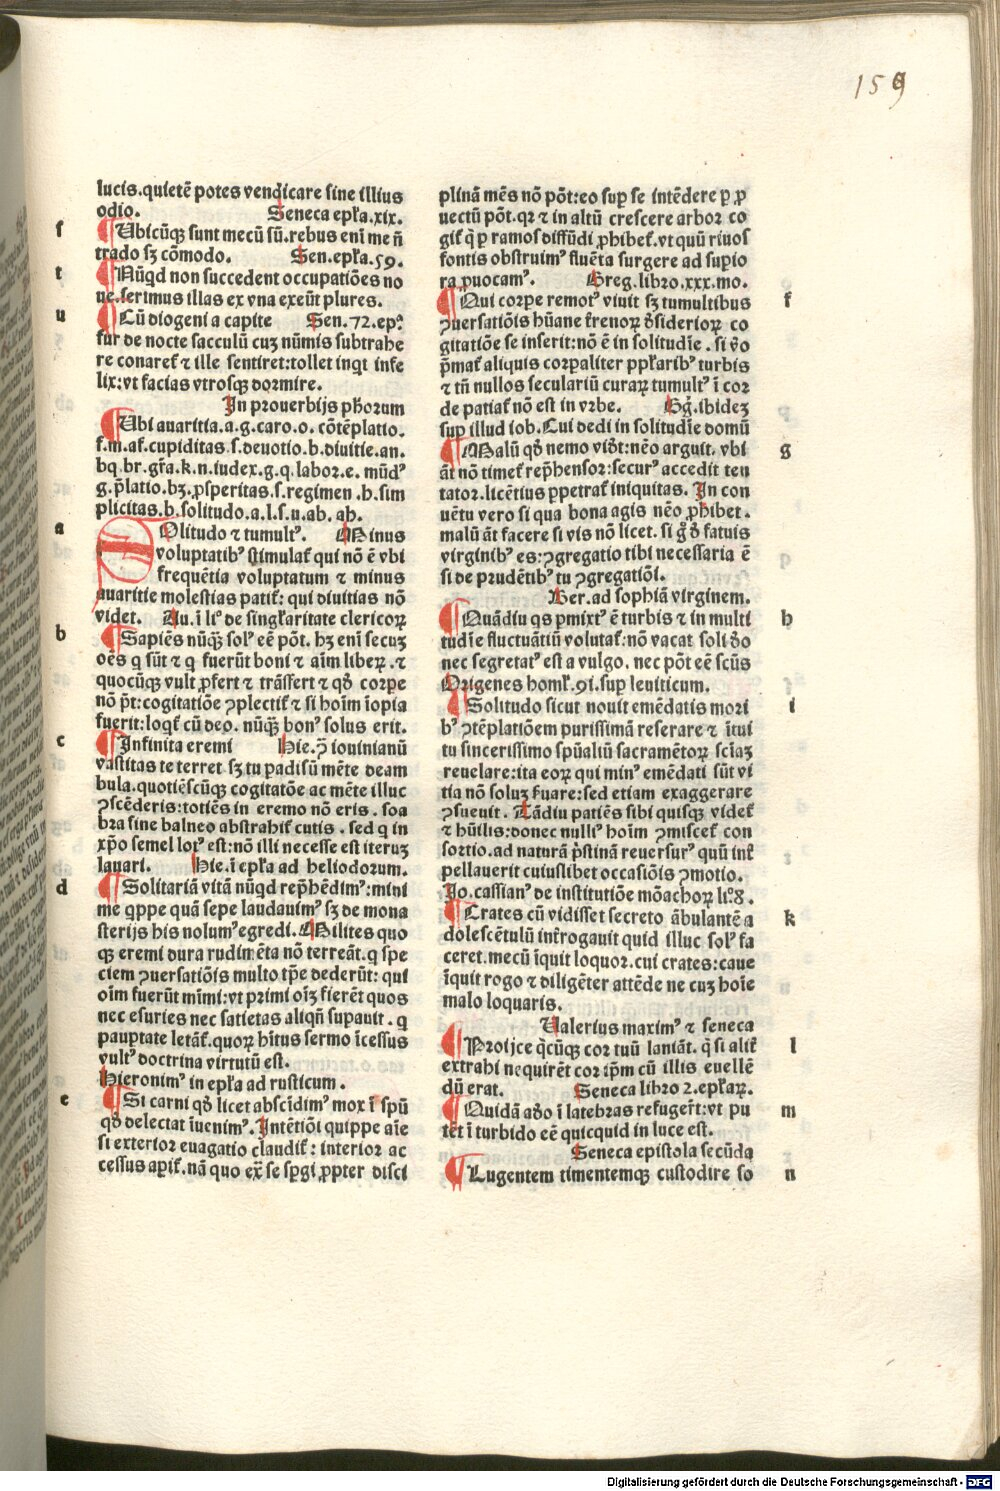 159
lucis.quietē potes vendicare sine illius
odio. Seneca epła.xix.
s
¶Ubicūqꝫ sunt mecū sū.rebus enī me ñ
trado sꝫ cōmodo. Sen.epła.59.
t
¶Nūqd non succedent occupatiōes no
ue.serimus illas ex vna exeūt plures.
u
¶Cū diogeni a capite Sen.72.epᵃ
fur de nocte sacculū cuꝫ nūmis subtrahe
re conaret̄ ⁊ ille sentiret:tollet inqt infe
lix:vt facias vtrosqꝫ dormire.
In prouerbijs pħorum
¶Ubi auaritia.a.g.caro.o.cōtēplatio.
f.m.af.cupiditas.s.deuotio.b.diuitie.an.
bq.br.gr̄a.k.n.iudex.g.q.labor.e.mūdꝰ
g.p̄latio.bꝫ.ꝓsperitas.s.regimen.b.sim
plicitas.b.solitudo.a.l.s.u.ab.ah.
a
SOlitudo ⁊ tumultꝰ. Minus
voluptatibꝰ stimulat̄ qui nō ē vbi
frequētia voluptatum ⁊ minus
auaritie molestias patit̄: qui diuitias nō
videt. Au.ī liº de singlaritate clericoꝝ
b
¶Sapiēs nūqꝫ solꝰ eē pōt. hꝫ enī secuꝫ
oēs q sūt ⁊ q fuerūt boni ⁊ aīm libeꝝ.⁊
quocūqꝫ vult ꝓfert ⁊ trāssert ⁊ qð corpe
nō p̄t:cogitatiōe ꝯplectit̄ ⁊ si hoīm īopia
fuerit:loqt̄ cū deo. nūqꝫ bonꝰ solus erit.
c
¶Infinita eremi Hie.ꝯ iouinianū
vastitas te terret sꝫ tu padisū mēte deam
bula.quotiēscūqꝫ cogitatōe ac mēte illuc
ꝯscēderis:totiēs in eremo nō eris. soa
bra sine balneo abstrahit̄ cutis. sed q in
xp̄o semel lotꝰ est:nō illi necesse est iteruꝫ
lauari. Hie.ī epła ad heliodorum.
d
¶Solitariā vitā nūqd rep̄hēdimꝰ:mini
me qppe quā sepe laudauimꝰ sꝫ de mona
sterijs his nolumꝰ egredi. Milites quo
qꝫ eremi dura rudimēta nō terreāt.q spe
ciem ꝯuersatiōis multo tp̄e dederūt: qui
oīm fuerūt mīmi:vt primi oīꝫ fierēt quos
nec esuries nec satietas aliqñ supauit. q
pauptate letāt̄. quoꝝ hītus sermo īcessus
vultꝰ doctrina virtutū est.
Hieronimꝰ in epła ad rusticum.
e
¶Si carni qð licet abscidimꝰ mox ī spū
qð delectat īuenimꝰ. Intētiōi quippe aīe
si exterior euagatio claudit̄: interior ac
cessus apit̄.nā quo ex̄ se sp̱gi ꝓpter disci
plinā mēs nō pōt:eo sup se intēdere p ꝓ
uectū pōt.qꝛ ⁊ in altū crescere arbor co
git̄ q̄ p ramos diffūdi ꝓhibet̄.vt quū riuos
fontis obstruimꝰ fluēta surgere ad supio
ra ꝓuocamꝰ. Greg.libro.xxx.mo.
f
¶Qui corpe remotꝰ viuit sꝫ tumultibus
ꝯuersatiōis hūane t̄renoꝝ ðsiderioꝝ co
gitatiōe se inserit:nō ē in solitudīe. si v̄o
p̄mat̄ aliquis corpaliter ppłaribꝰ turbis
⁊ tñ nullos seculariū curaꝝ tumultꝰ ī cor
de patiat̄ nō est in vrbe. Gḡ.ibideꝫ
sup illud iob.Cui dedi in solitudīe domū
g
¶Malū qð nemo viðt:nēo arguit. vbi
āt nō timet̄ rep̄hensor:securꝰ accedit ten
tator.licētius ꝑpetrat̄ iniquitas. In con
uētu vero si qua bona agis nēo ꝓhibet.
malū āt facere si vis nō licet. si ḡ ð fatuis
virginibꝰ es:ꝯgregatio tibi necessaria ē
si de prudētibꝰ tu ꝯgregatiōi.
Ber.ad sophiā virginem.
h
¶Quādiu qs pmixtꝰ ē turbis ⁊ in multi
tudīe fluctuātiū volutat̄:nō vacat soli ðo
nec segretatꝰ est a vulgo. nec pōt eē scūs
Origenes homł.9i.sup leuiticum.
i
¶Solitudo sicut nouit emēdatis mori
bꝰ ꝯtēplatiōem purissimā reserare ⁊ ītui
tu sincerissimo spūaliū sacramētoꝝ sciāꝫ
reuelare:ita eoꝝ qui minꝰ emēdati sūt vi
tia nō soluꝫ s̄uare:sed etiam exaggerare
ꝯsueuit. Tādiu patiēs sibi quisqꝫ videt̄
⁊ hūilis:donec nulliꝰ hoīm ꝯmiscet̄ con
sortio.ad naturā p̄stinā reuersurꝰ quū int̄
pellauerit cuiuslibet occasiōis ꝯmotio.
Io.cassianꝰ de institutiōe mōachoꝝ liº8.
k
¶Crates cū vidisset secreto ābulantē a
dolescētulū int̄rogauit quid illuc solꝰ fa
ceret.mecū īquit loquor.cui crates:caue
īquit rogo ⁊ diligēter attēde ne cuꝫ hoīe
malo loquaris.
Valerius maximꝰ ⁊ seneca
l
¶Proijce q̄cūqꝫ cor tuū laniāt. q̄ si alit̄
extrahi nequirēt cor ip̄m cū illis euellē
dū erat. Seneca libro 2.epłaꝝ.
m
¶Quidā aðo ī latebras refugert̄:vt pu
tēt ī turbido eē quicquid in luce est.
Seneca epistola secūda
n
¶Lugentem timentemqꝫ custodire so
Digitalisierung gefördert durch die Deutsche Forschungsgemeinschaft - DFG